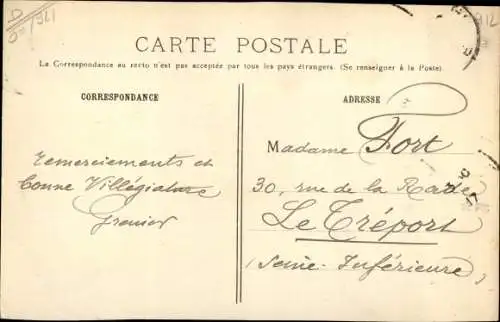 CARTE POSTALE
La Correspondance au recto n'est pas acceptée par tous les pays étrangers. (Se renseigner à la Poste).
CORRESPONDANCE
remerciements et
bonne Villégiature
Grenier
ADRESSE
Madame Fort
30, rue de la Rade
Le Tréport
(Seine-Inférieure)